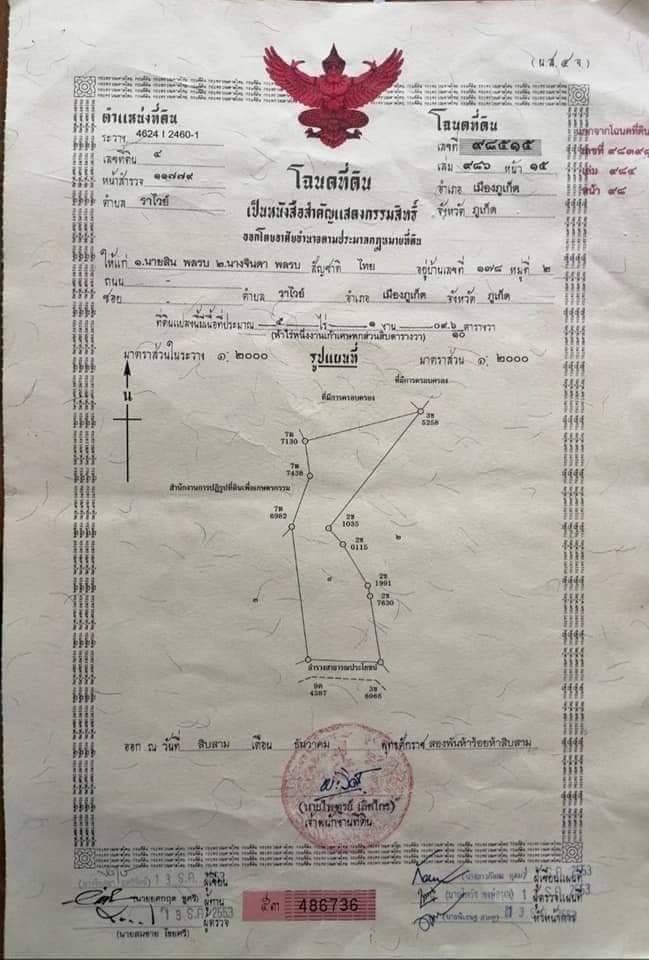 (น.ส. ๔ จ)
ตำแหน่งที่ดิน
ระวาง 4624 I 2460-1
เลขที่ดิน ๔
หน้าสำรวจ ๑๑๗๗๙
ตำบล ราไวย์
โฉนดที่ดิน
เลขที่ ๙๘๕๑๕
เล่ม ๙๘๖ หน้า ๑๕
อำเภอ เมืองภูเก็ต
จังหวัด ภูเก็ต
แยกจากโฉนดที่ดิน
เลขที่
เล่ม ๙๘๔
หน้า ๙๘
โฉนดที่ดิน
เป็นหนังสือสำคัญแสดงกรรมสิทธิ์
ออกโดยอาศัยอำนาจตามประมวลกฎหมายที่ดิน
ให้แก่ ๑.นายสิน พลรบ ๒.นางจินดา พลรบ สัญชาติ ไทย อยู่บ้านเลขที่ ๑๗๘ หมู่ที่ ๒
ถนน -
ซอย - ตำบล ราไวย์ อำเภอ เมืองภูเก็ต จังหวัด ภูเก็ต
ที่ดินแปลงนี้มีเนื้อที่ประมาณ ๕ ไร่ ๑ งาน ๐๙.๖/๑๐ ตารางวา
(ห้าไร่หนึ่งงานเก้าเศษหกส่วนสิบตารางวา)
มาตราส่วนในระวาง ๑: ๒๐๐๐ รูปแผนที่ มาตราส่วน ๑: ๒๐๐๐
น
ที่มีการครอบครอง
ที่มีการครอบครอง
3ช
5258
7ต
7130
7ต
7438
สำนักงานการปฏิรูปที่ดินเพื่อเกษตรกรรม
7ต
6982
2ช
1035
2ช
0115
๒
2ช
1991
๔
2ช
7630
๓
ลำรางสาธารณประโยชน์
4387
3ช
6966
ออก ณ วันที่ สิบสาม เดือน ธันวาคม พุทธศักราช สองพันห้าร้อยห้าสิบสาม
เจ้าพนักงานที่ดิน
1 3 ธ.ค. 2553 ผู้เขียน
ผู้ทาน
1 3 ธ.ค. 2553 ผู้ตรวจ
(นายสมชาย ไชยศรี)
๕๓ 486736
ผู้เขียนแผนที่
ผู้ตรวจแผนที่
หัวหน้าการ